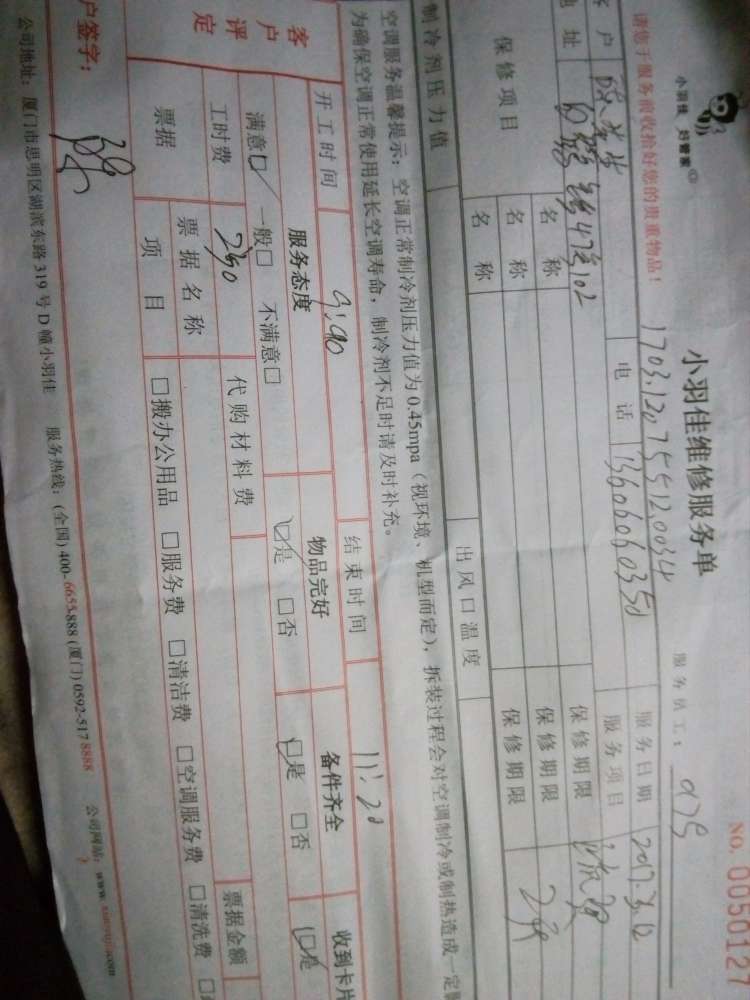 小羽佳 好管家
小羽佳维修服务单
NO. 0050127
请您于服务前收拾好您的贵重物品！
1703120755120034
服务员工：
客户
电话
13606060350
服务日期
2017.3.12
地址
47号102
服务项目
保修项目
名称
保修期限
名称
保修期限
2年
名称
保修期限
制冷剂压力值
出风口温度
空调服务温馨提示：空调正常制冷剂压力值为0.45mpa（视环境、机型而定），拆装过程会对空调制冷或制热造成一定
为确保空调正常使用延长空调寿命，制冷剂不足时请及时补充。
开工时间
9:90
结束时间
11:20
客户评定
服务态度
物品完好
备件齐全
收到卡片
满意☑ 一般□ 不满意□
☑是 □否
☑是 □否
□是
工时费
250
代购材料费
票据
票据名称
票据金额
项目
□搬办公用品 □服务费 □清洁费 □空调服务费 □清洗费
户签字：
公司地址：厦门市思明区湖滨东路319号D幢小羽佳 服务热线：(全国) 400-6655-888 (厦门) 0592-517 8888 公司网站：